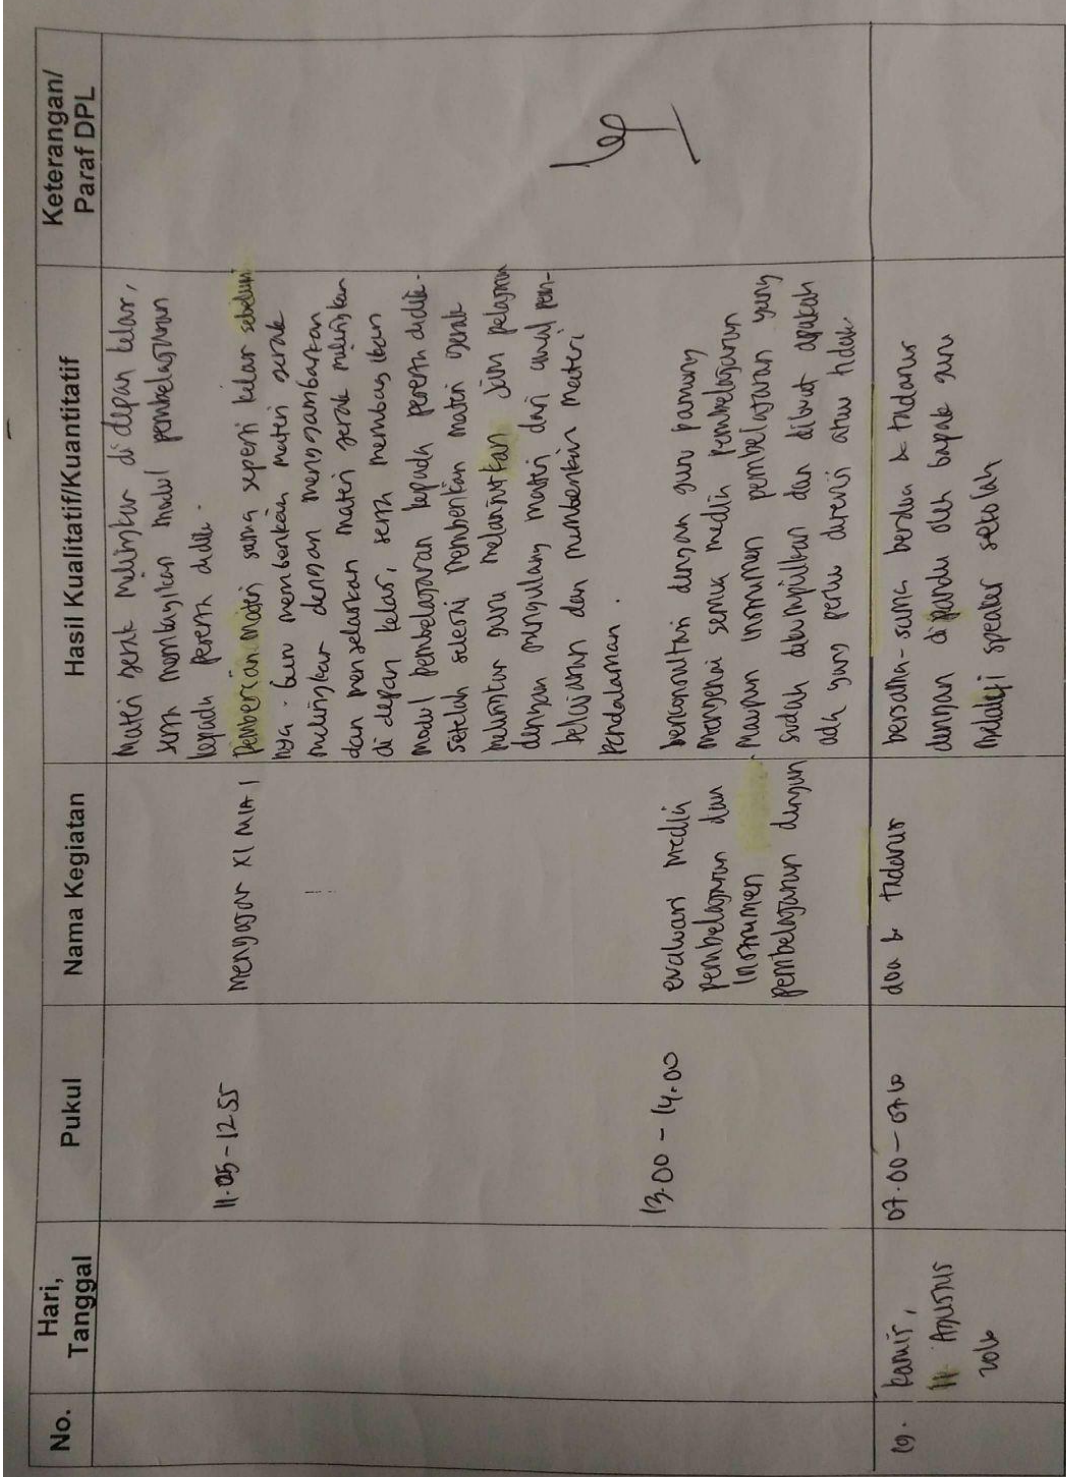 No.
Hari,
Tanggal
Pukul
Nama Kegiatan
Hasil Kualitatif/Kuantitatif
Keterangan/
Paraf DPL
Materi gerak melingkar di depan kelas,
serta membagikan modul pembelajaran
kepada peserta didik.
11.05-12.55
Mengajar XI MIA 1
Pemberian materi sama seperti kelas sebelum
nya. Guru memberikan materi gerak
melingkar dengan menggambarkan
dan menjelaskan materi gerak melingkar
di depan kelas, serta membagikan
modul pembelajaran kepada peserta didik.
Setelah selesai memberikan materi gerak
melingkar guru melanjutkan jam pelajaran
dengan mengulang materi dari awal pem-
belajaran dan memberikan materi
pendalaman.
13.00 - 14.00
evaluasi media
pembelajaran dan
Instrumen
pembelajaran dengan
berkonsultasi dengan guru pamong
mengenai semua media pembelajaran
maupun instrumen pembelajaran yang
sudah dikumpulkan dan dibuat apakah
ada yang perlu direvisi atau tidak.
19.
Kamis,
11 Agustus
2016
07.00-07.10
doa & tadarus
bersama-sama berdoa & tadarus
dengan dipandu oleh bapak guru
melalui speaker sekolah